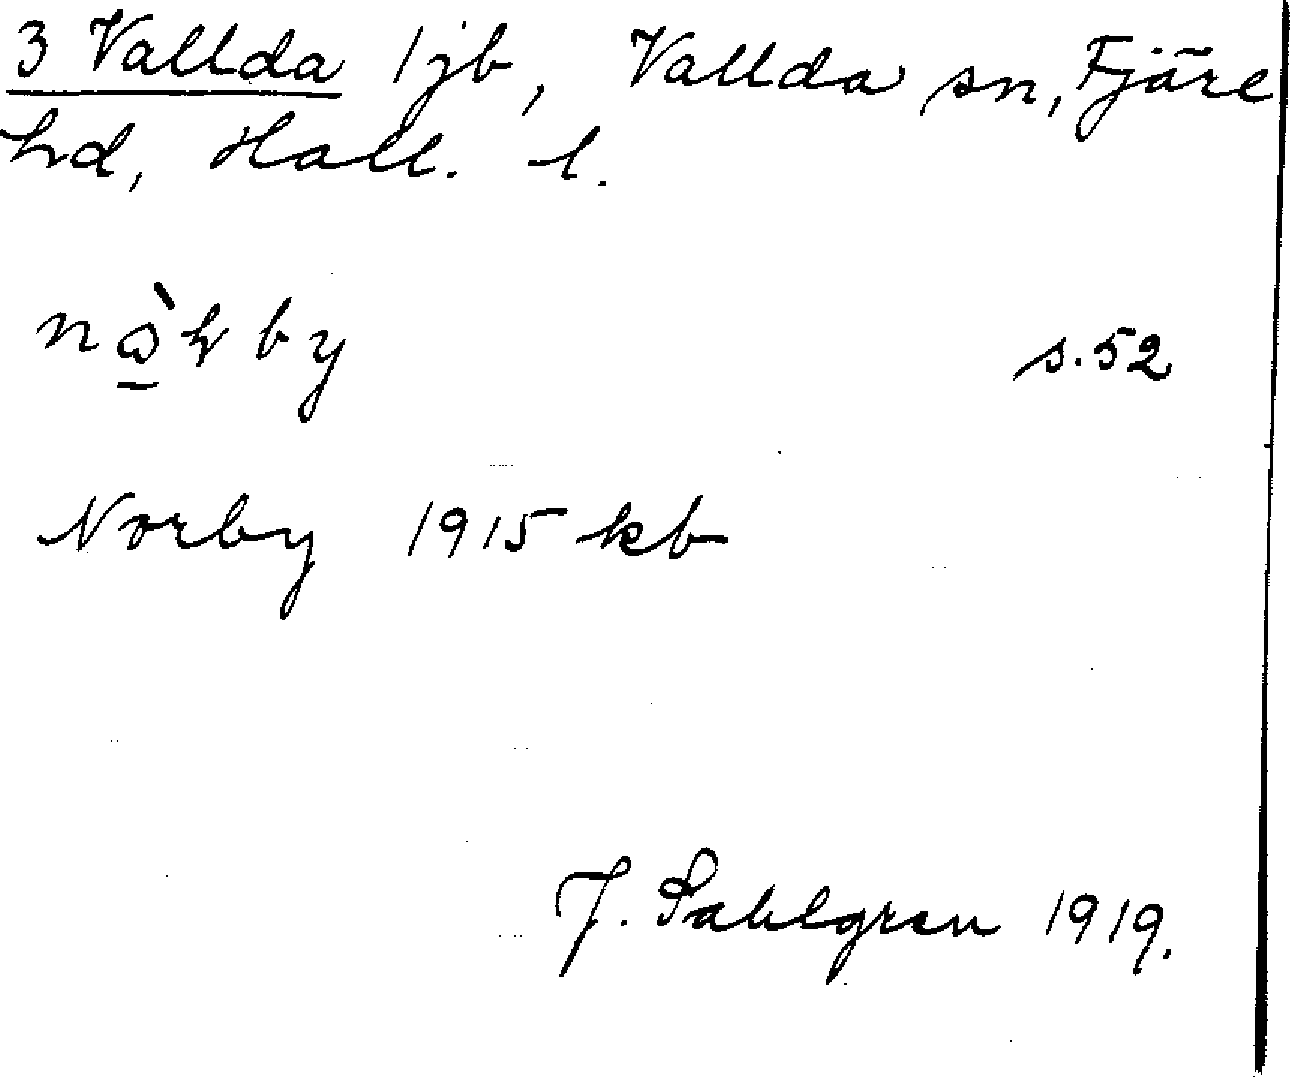 3 Vallda 1 jb, Vallda sn, Fjäre
hd, Hall. l.
s. 52
Norby 1915 kb
J. Sahlgren 1919.